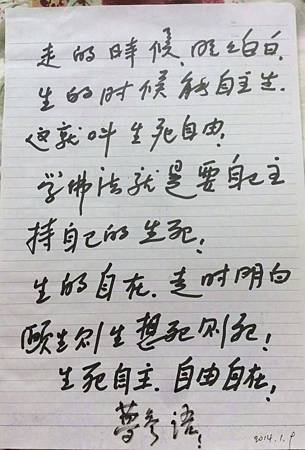 走的時候，明明白白，
生的时候能自主生，
这就叫生死自由，
学佛法就是要自己主
持自己的生死！
生的自在，走时明白
願生则生想死则死！
生死自主，自由自在！
夢参语！
2014.1.9